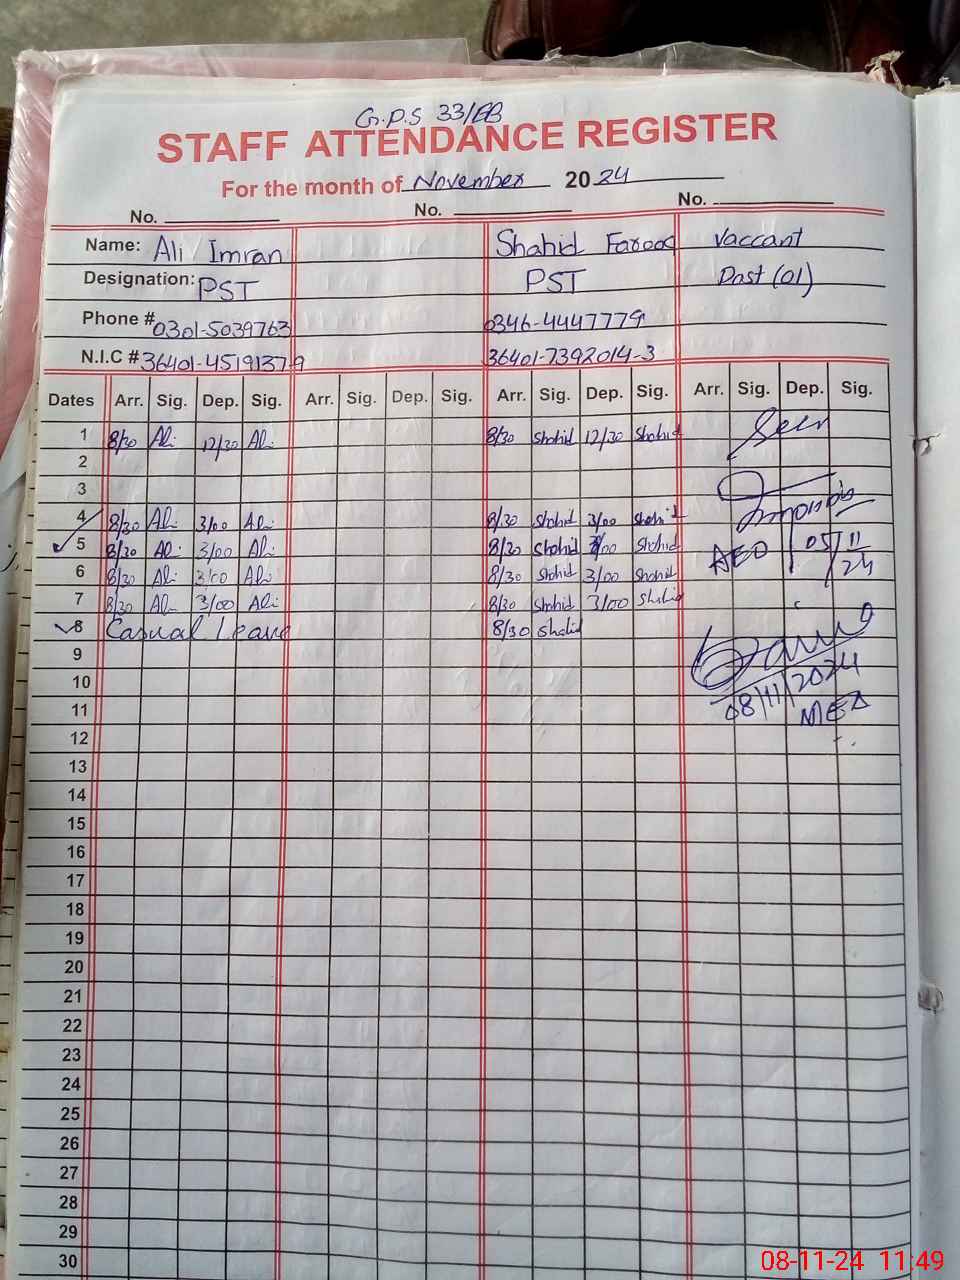 G.P.S 33/EB
STAFF ATTENDANCE REGISTER
For the month of November 2024
No. No. No.
Name: Ali Imran Shahid Farooq Vaccant
Designation: PST PST Post (01)
Phone # 0301-5039763 0346-4447779
N.I.C # 36401-4519137-9 36401-7392014-3
Dates Arr. Sig. Dep. Sig. Arr. Sig. Dep. Sig. Arr. Sig. Dep. Sig. Arr. Sig. Dep. Sig.
1 8/30 Ali 12/30 Ali 8/30 Shahid 12/30 Shahid Seen
2
3
4 8/30 Ali 3/00 Ali 8/30 Shahid 3/00 Shahid
5 8/30 Ali 3/00 Ali 8/30 Shahid 3/00 Shahid AEO 05/11/24
6 8/30 Ali 3/00 Ali 8/30 Shahid 3/00 Shahid
7 8/30 Ali 3/00 Ali 8/30 Shahid 3/00 Shahid
8 Casual Leave 8/30 Shahid
9
10
11 08/11/2024
MEA
12
13
14
15
16
17
18
19
20
21
22
23
24
25
26
27
28
29
30
08-11-24 11:49